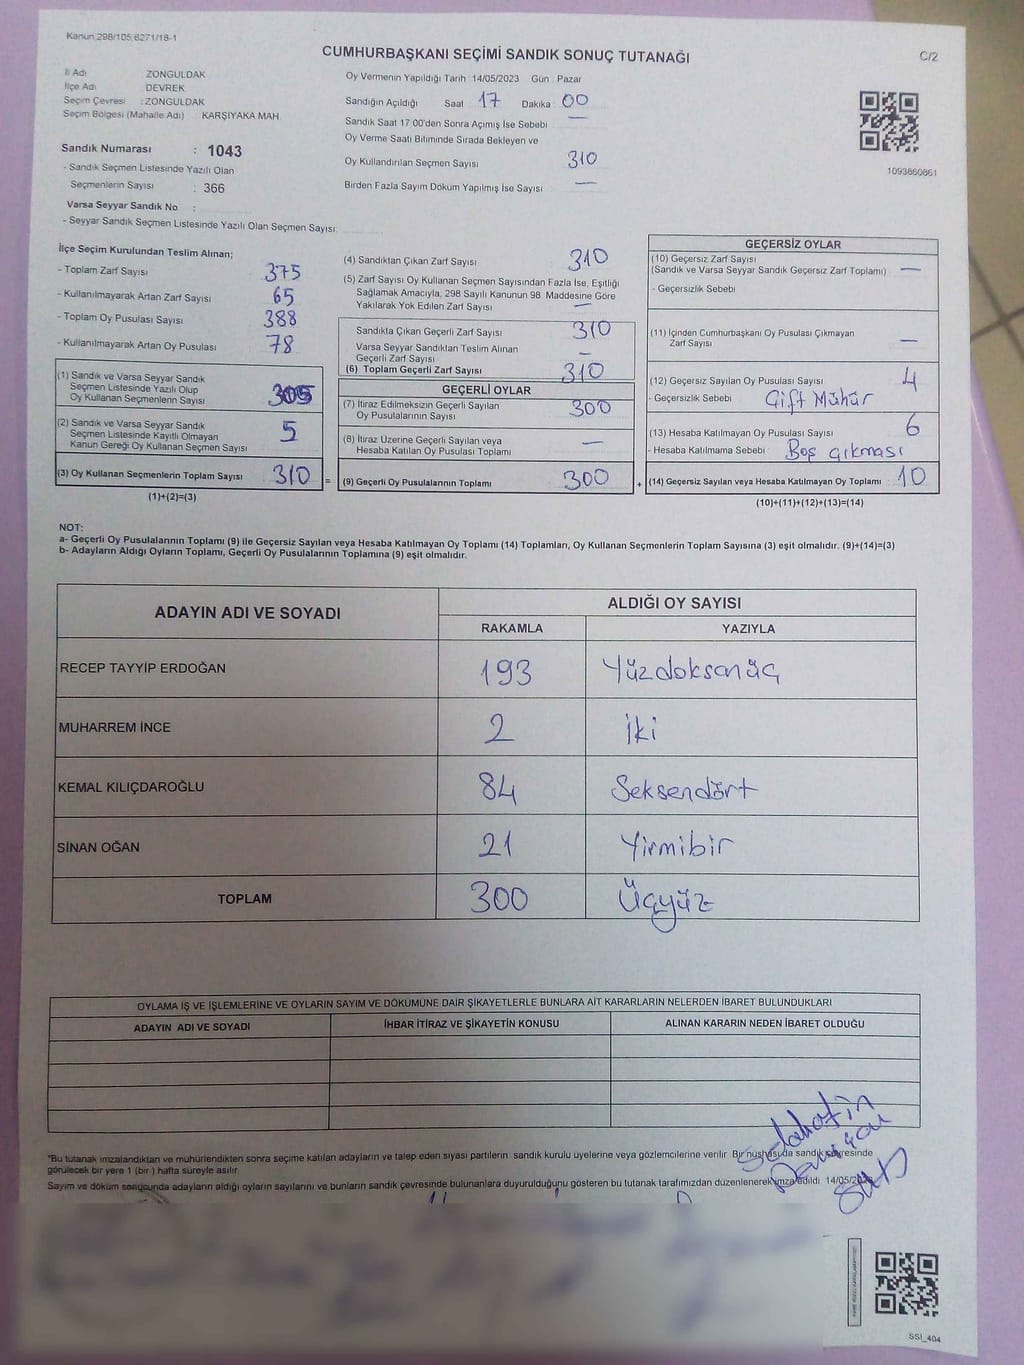 Kanun 298/105,6271/18-1
CUMHURBAŞKANI SEÇİMİ SANDIK SONUÇ TUTANAĞI
C/2
İl Adı ZONGULDAK
İlçe Adı DEVREK
Seçim Çevresi : ZONGULDAK
Seçim Bölgesi (Mahalle Adı) KARŞIYAKA MAH.
Sandık Numarası : 1043
- Sandık Seçmen Listesinde Yazılı Olan
Seçmenlerin Sayısı : 366
Varsa Seyyar Sandık No :
- Seyyar Sandık Seçmen Listesinde Yazılı Olan Seçmen Sayısı:
Oy Vermenin Yapıldığı Tarih 14/05/2023 Gün : Pazar
Sandığın Açıldığı Saat 17 Dakika : 00
Sandık Saat 17 00'den Sonra Açımış İse Sebebi —
Oy Verme Saati Bitiminde Sırada Bekleyen ve
Oy Kullandırılan Seçmen Sayısı 310
Birden Fazla Sayım Döküm Yapılmış İse Sayısı —
1093860861
İlçe Seçim Kurulundan Teslim Alınan;
- Toplam Zarf Sayısı 375
- Kullanılmayarak Artan Zarf Sayısı 65
- Toplam Oy Pusulası Sayısı 388
- Kullanılmayarak Artan Oy Pusulası 78
(1) Sandık ve Varsa Seyyar Sandık
Seçmen Listesinde Yazılı Olup
Oy Kullanan Seçmenlerin Sayısı 305
(2) Sandık ve Varsa Seyyar Sandık
Seçmen Listesinde Kayıtlı Olmayan
Kanun Gereği Oy Kullanan Seçmen Sayısı 5
(3) Oy Kullanan Seçmenlerin Toplam Sayısı 310
(1)+(2)=(3)
(4) Sandıktan Çıkan Zarf Sayısı 310
(5) Zarf Sayısı Oy Kullanan Seçmen Sayısından Fazla İse, Eşitliği
Sağlamak Amacıyla, 298 Sayılı Kanunun 98 Maddesine Göre
Yakılarak Yok Edilen Zarf Sayısı —
Sandıkta Çıkan Geçerli Zarf Sayısı 310
Varsa Seyyar Sandıktan Teslim Alınan
Geçerli Zarf Sayısı —
(6) Toplam Geçerli Zarf Sayısı 310
GEÇERLİ OYLAR
(7) İtiraz Edilmeksizin Geçerli Sayılan
Oy Pusulalarının Sayısı 300
(8) İtiraz Üzerine Geçerli Sayılan veya
Hesaba Katılan Oy Pusulası Toplamı —
= (9) Geçerli Oy Pusulalarının Toplamı 300 +
GEÇERSİZ OYLAR
(10) Geçersiz Zarf Sayısı
(Sandık ve Varsa Seyyar Sandık Geçersiz Zarf Toplamı) —
- Geçersizlik Sebebi
(11) İçinden Cumhurbaşkanı Oy Pusulası Çıkmayan
Zarf Sayısı —
(12) Geçersiz Sayılan Oy Pusulası Sayısı 4
- Geçersizlik Sebebi Çift Mühür
(13) Hesaba Katılmayan Oy Pusulası Sayısı 6
- Hesaba Katılmama Sebebi Boş çıkması
(14) Geçersiz Sayılan veya Hesaba Katılmayan Oy Toplamı 10
(10)+(11)+(12)+(13)=(14)
NOT:
a- Geçerli Oy Pusulalarının Toplamı (9) ile Geçersiz Sayılan veya Hesaba Katılmayan Oy Toplamı (14) Toplamları, Oy Kullanan Seçmenlerin Toplam Sayısına (3) eşit olmalıdır. (9)+(14)=(3)
b- Adayların Aldığı Oyların Toplamı, Geçerli Oy Pusulalarının Toplamına (9) eşit olmalıdır.
ADAYIN ADI VE SOYADI ALDIĞI OY SAYISI
RAKAMLA YAZIYLA
RECEP TAYYİP ERDOĞAN 193 Yüzdoksanüç
MUHARREM İNCE 2 İki
KEMAL KILIÇDAROĞLU 84 Seksendört
SİNAN OĞAN 21 Yirmibir
TOPLAM 300 Üçyüz
OYLAMA İŞ VE İŞLEMLERİNE VE OYLARIN SAYIM VE DÖKÜMÜNE DAİR ŞİKAYETLERLE BUNLARA AİT KARARLARIN NELERDEN İBARET BULUNDUKLARI
ADAYIN ADI VE SOYADI İHBAR İTİRAZ VE ŞİKAYETİN KONUSU ALINAN KARARIN NEDEN İBARET OLDUĞU
*Bu tutanak imzalandıktan ve mühürlendikten sonra seçime katılan adayların ve talep eden siyasi partilerin sandık kurulu üyelerine veya gözlemcilerine verilir. Bir nüshası da sandık çevresinde
görülecek bir yere 1 (bir ) hafta süreyle asılır.
Sayım ve döküm sonucunda adayların aldığı oyların sayılarını ve bunların sandık çevresinde bulunanlara duyurulduğunu gösteren bu tutanak tarafımızdan düzenlenerek imza edildi. 14/05/2023
SSI_404